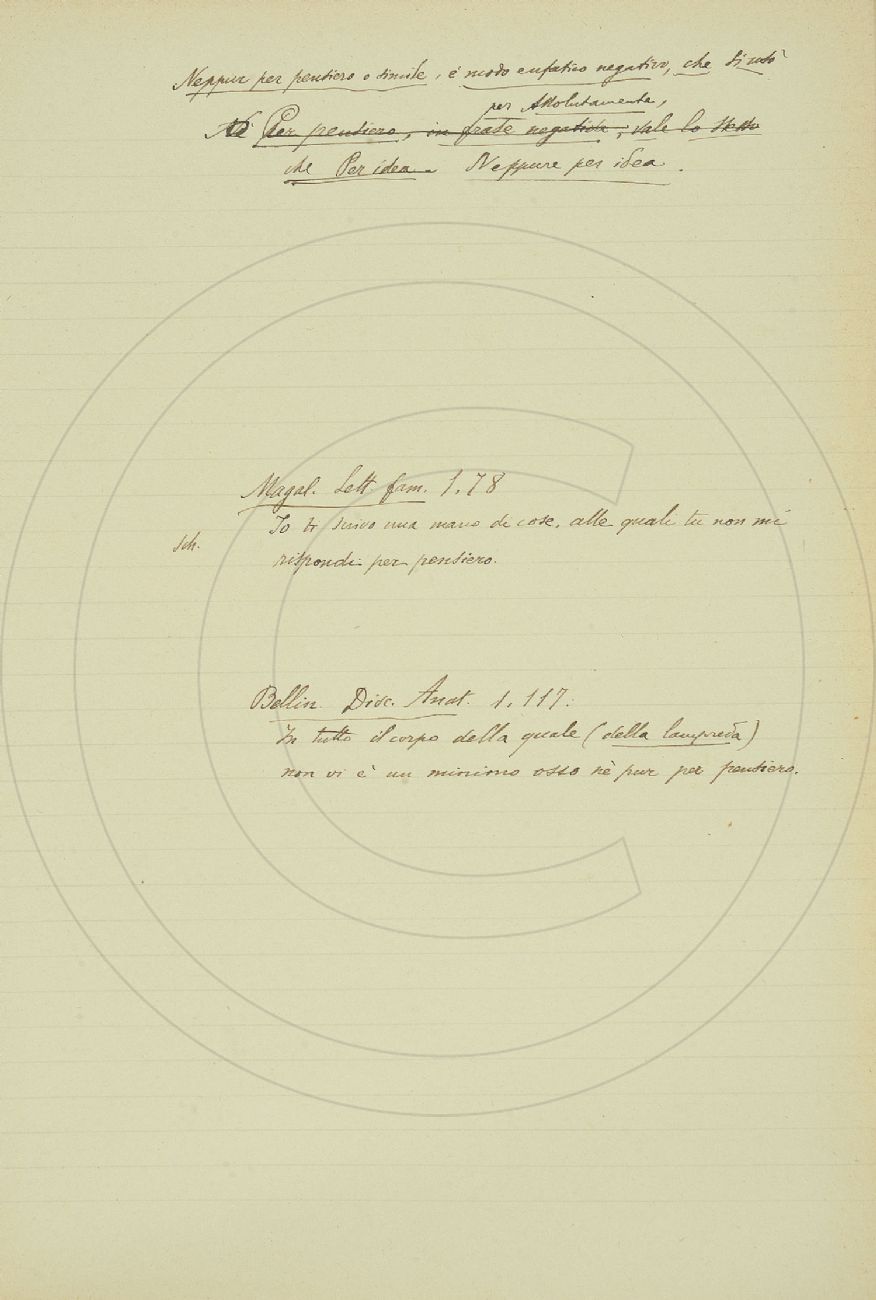 Neppur per pensiero o simile, è modo enfatico negativo, che si usò
per Assolutamente,
Nè Per pensiero, in frase negativa, vale lo stesso
che Per idea. Neppure per idea.
Magal. Lett. fam. 1.78
Io ti scrivo una mano di cose, alle quali tu non mi
sch.
rispondi per pensiero.
Bellin. Disc. Anat. 1.117:
In tutto il corpo della quale (della lampreda)
non vi è un minimo osso nè pur per pensiero.